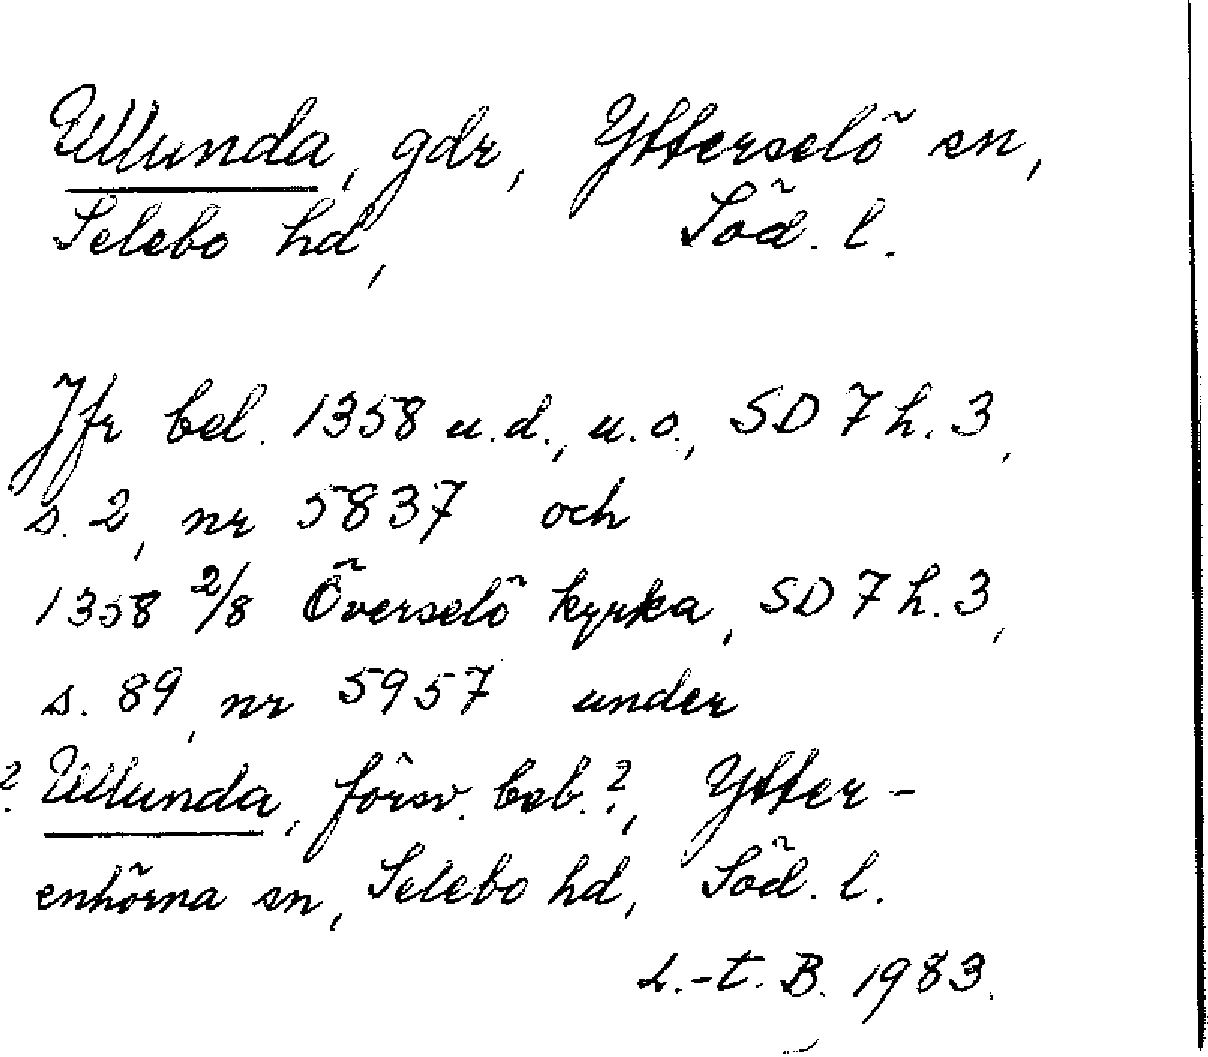 Ullunda, gdr, Ytterselö sn,
Selebo hd, Söd. l.
Jfr bel. 1358 u.d., u.o., SD 7 h. 3,
s. 2, nr 5837 och
1358 2/8 Överselö kyrka, SD 7 h. 3,
s. 89, nr 5957 under
? Ullunda, försv. beb.?, Ytter-
enhörna sn, Selebo hd, Söd. l.
L.-t. B. 1983.